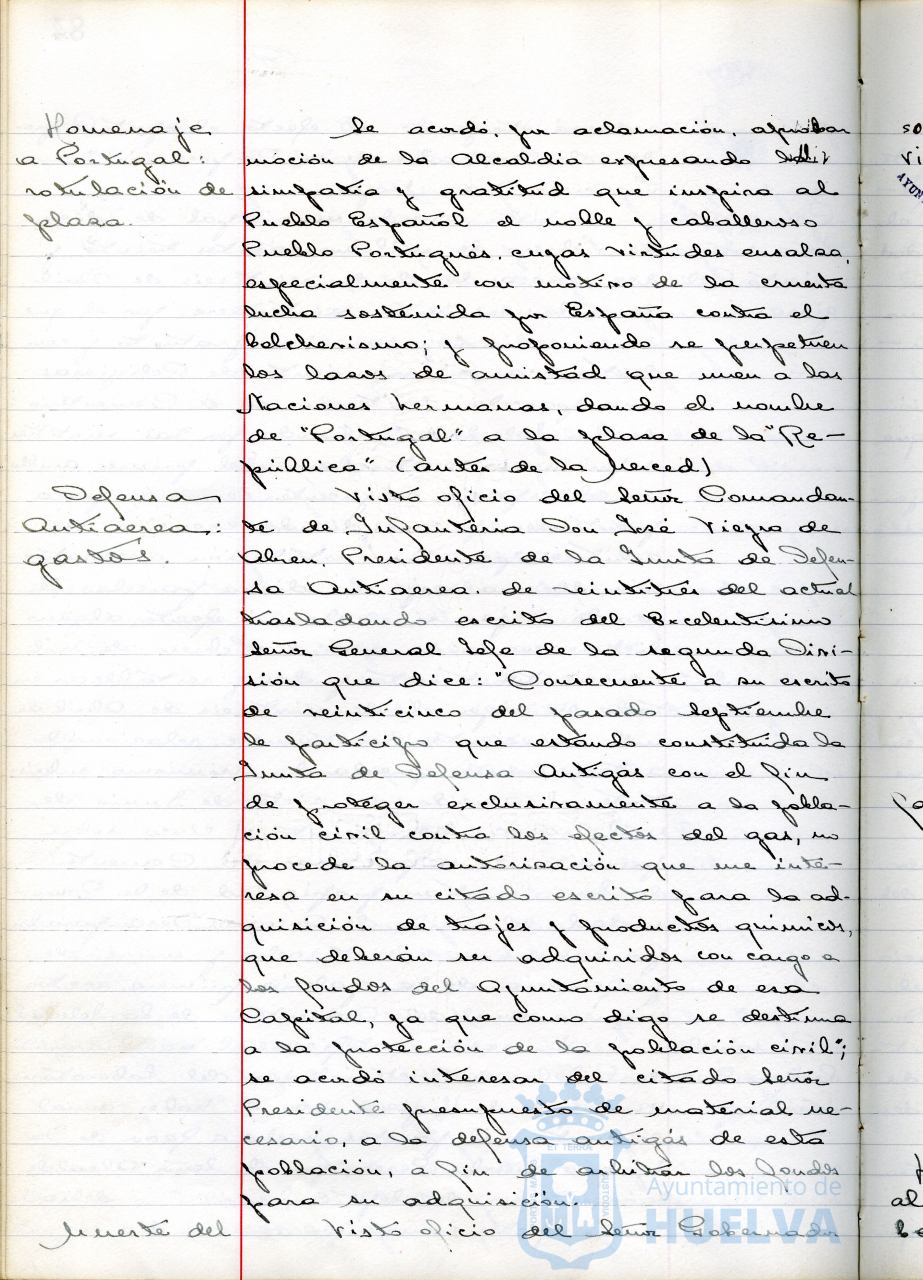 Homenaje
a Portugal:
rotulación de
plaza.
Se acordó, por aclamación, aprobar
moción de la Alcaldia expresando la
simpatía y gratitud que inspira al
Pueblo Español el noble y caballeroso
Pueblo Portugués, cuyas virtudes ensalza,
especialmente con motivo de la cruenta
lucha sostenida por España contra el
bolchevismo; y proponiendo se perpetuen
los lazos de amistad que unen a las
Naciones hermanas, dando el nombre
de "Portugal" a la plaza de la "Re-
pública" (antes de la Merced)
Defensa
Antiaerea:
gastos.
Visto oficio del Señor Comandan-
te de Infanteria Don José Viegra de
Abreu, Presidente de la Junta de Defen-
sa Antiaerea, de veintitres del actual
trasladando escrito del Excelentísimo
Señor General Jefe de la segunda Divi-
sión que dice: "Consecuente a su escrito
de veinticinco del pasado Septiembre
le participo que estando constituida la
Junta de Defensa Antigás con el fin
de proteger exclusivamente a la pobla-
ción civil contra los efectos del gas, no
procede la autorización que me inte-
resa en su citado escrito para la ad-
quisición de trajes y productos químicos,
que deberán ser adquiridos con cargo a
los fondos del Ayuntamiento de esa
Capital, ya que como digo se destina
a la protección de la población civil";
se acordó interesar del citado Señor
Presidente presupuesto de material ne-
cesario, a la defensa antigás de esta
población, a fin de arbitrar los fondos
para su adquisición.
Muerte del
Visto oficio del Señor Gobernador
Ayuntamiento de
HUELVA